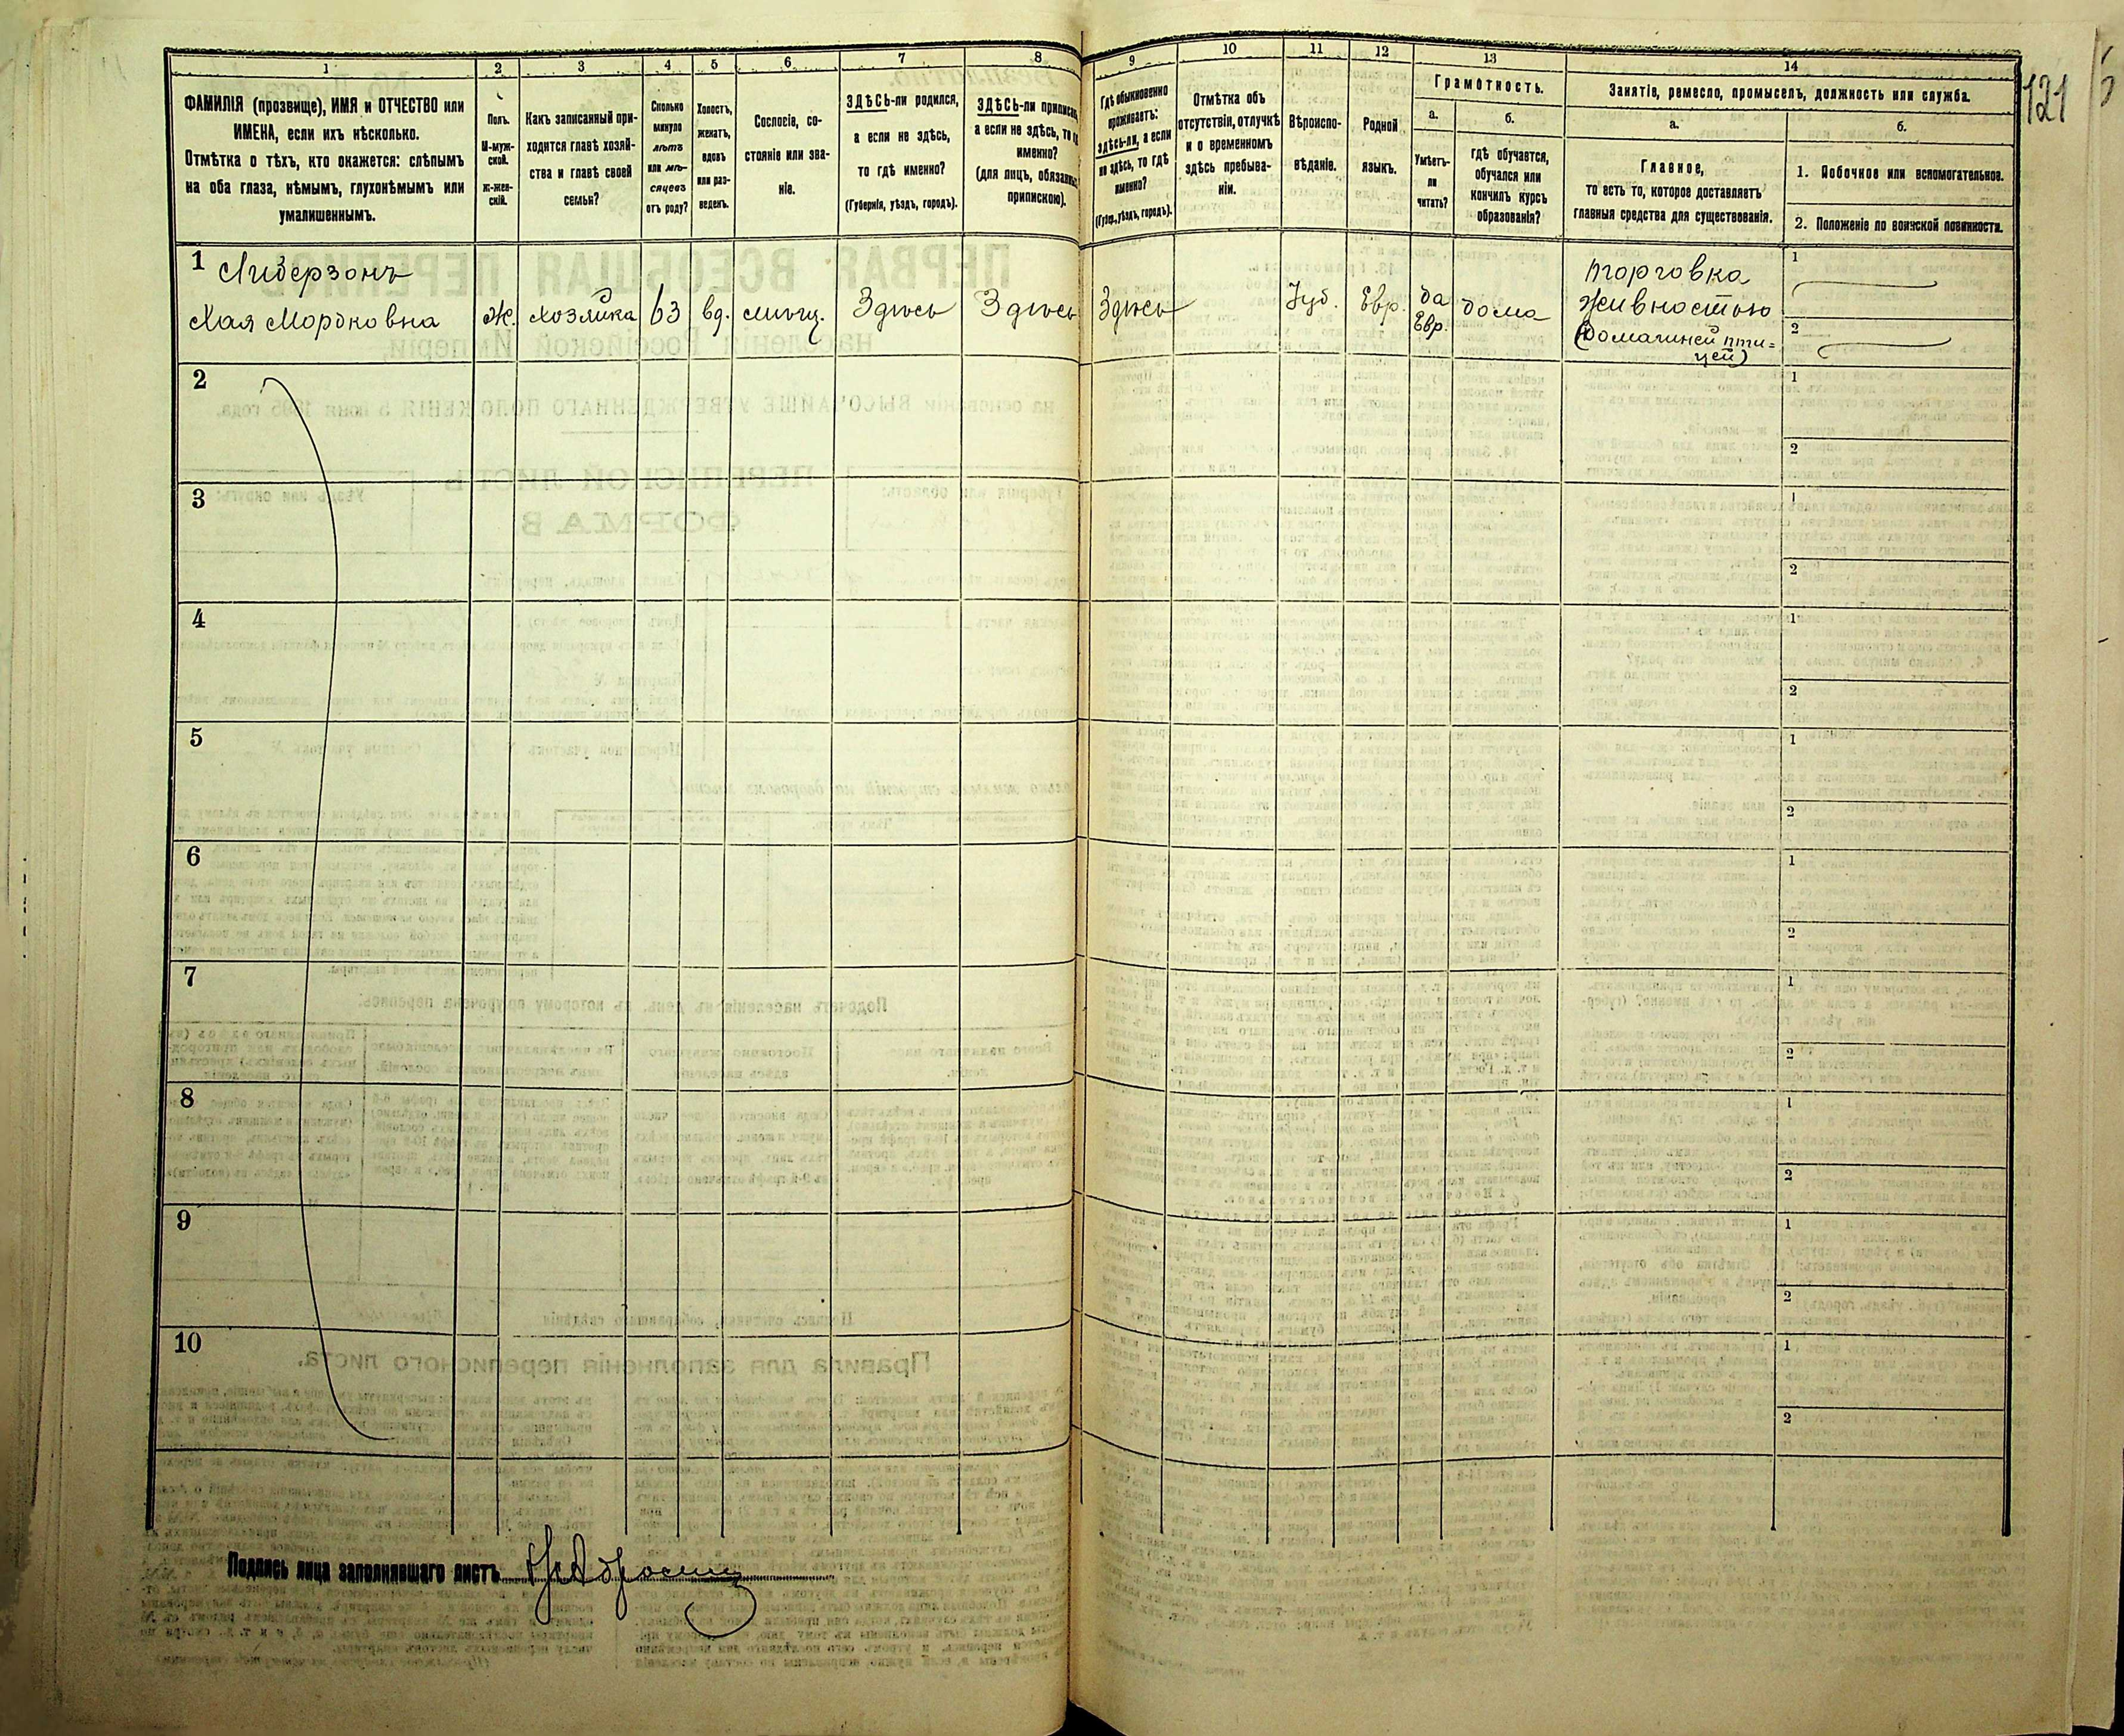 1 2 3 4 5 6 7 8 9 10 11 12 13 14
ФАМИЛІЯ (прозвище), ИМЯ и ОТЧЕСТВО или
ИМЕНА, если ихъ нѣсколько.
Отмѣтка о тѣхъ, кто окажется: слѣпымъ
на оба глаза, нѣмымъ, глухонѣмымъ или
умалишеннымъ.
Полъ.
М-муж-
ской.
ж-жен-
скій.
Какъ записанный при-
ходится главѣ хозяй-
ства и главѣ своей
семьи?
Сколько
минуло
лѣтъ
или мѣ-
сяцевъ
отъ роду?
Холостъ,
женатъ,
вдовъ
или раз-
веденъ.
Сословіе, со-
стояніе или зва-
ніе.
ЗДѢСЬ-ли родился,
а если не здѣсь,
то гдѣ именно?
(Губернія, уѣздъ, городъ).
ЗДѢСЬ-ли приписанъ
а если не здѣсь, то гдѣ
именно?
(для лицъ, обязанныхъ
припискою).
Гдѣ обыкновенно
проживаетъ:
здѣсь-ли, а если
не здѣсь, то гдѣ
именно?
(Губер., уѣздъ, городъ).
Отмѣтка объ
отсутствіи, отлучкѣ
и о временномъ
здѣсь пребыва-
ніи.
Вѣроиспо-
вѣданіе.
Родной
языкъ.
Грамотность.
а.
Умѣетъ-
ли
читать?
б.
гдѣ обучается,
обучался или
кончилъ курсъ
образованія?
Занятіе, ремесло, промыселъ, должность или служба.
а.
Главное,
то есть то, которое доставляетъ
главныя средства для существованія.
б.
1. Побочное или вспомогательное.
2. Положеніе по воинской повинности.
121
1 Либерзонъ
Хая Мордковна
Ж.
хозяйка
63
вд.
мѣщ.
Здѣсь
Здѣсь
Здѣсь
Іуд.
Евр.
да
Евр.
дома
торговка
живностью
(домашней пти=
цей)
1
2
2
1
2
3
1
2
4
1
2
5
1
2
6
1
2
7
1
2
8
1
2
9
1
2
10
1
2
Подпись лица заполнявшаго листъ